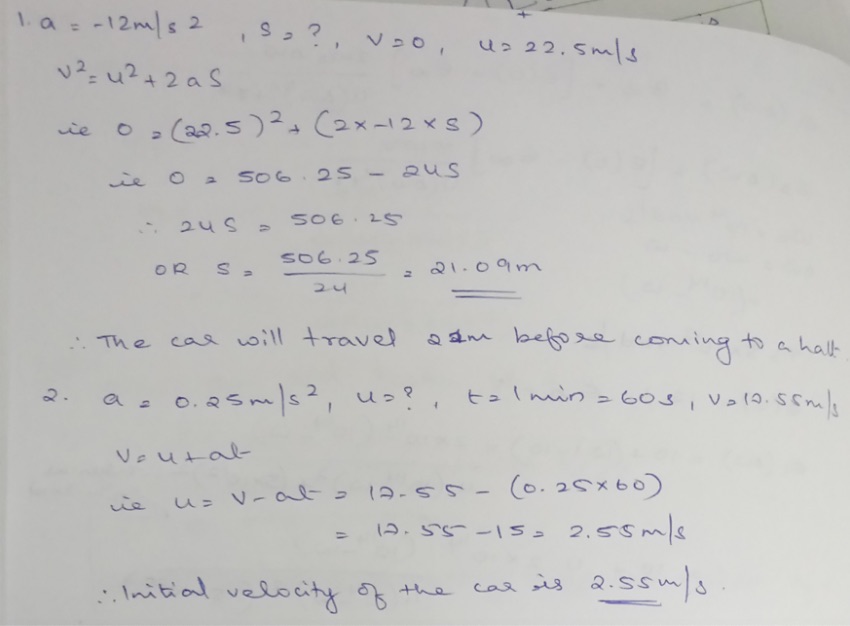 1. a = -12m/s2 , s = ?, v=0, u= 22.5m/s
v² = u² + 2as
ie 0 = (22.5)² + (2×-12×s)
ie 0 = 506.25 - 24s
∴ 24s = 506.25
OR s = 506.25/24 = 21.09m
∴ The car will travel 21m before coming to a halt
2. a = 0.25m/s², u=?, t=1min=60s, v=17.55m/s
v=u+at
ie u= v-at = 17.55 - (0.25×60)
= 17.55-15 = 2.55m/s
∴ Initial velocity of the car is 2.55m/s.